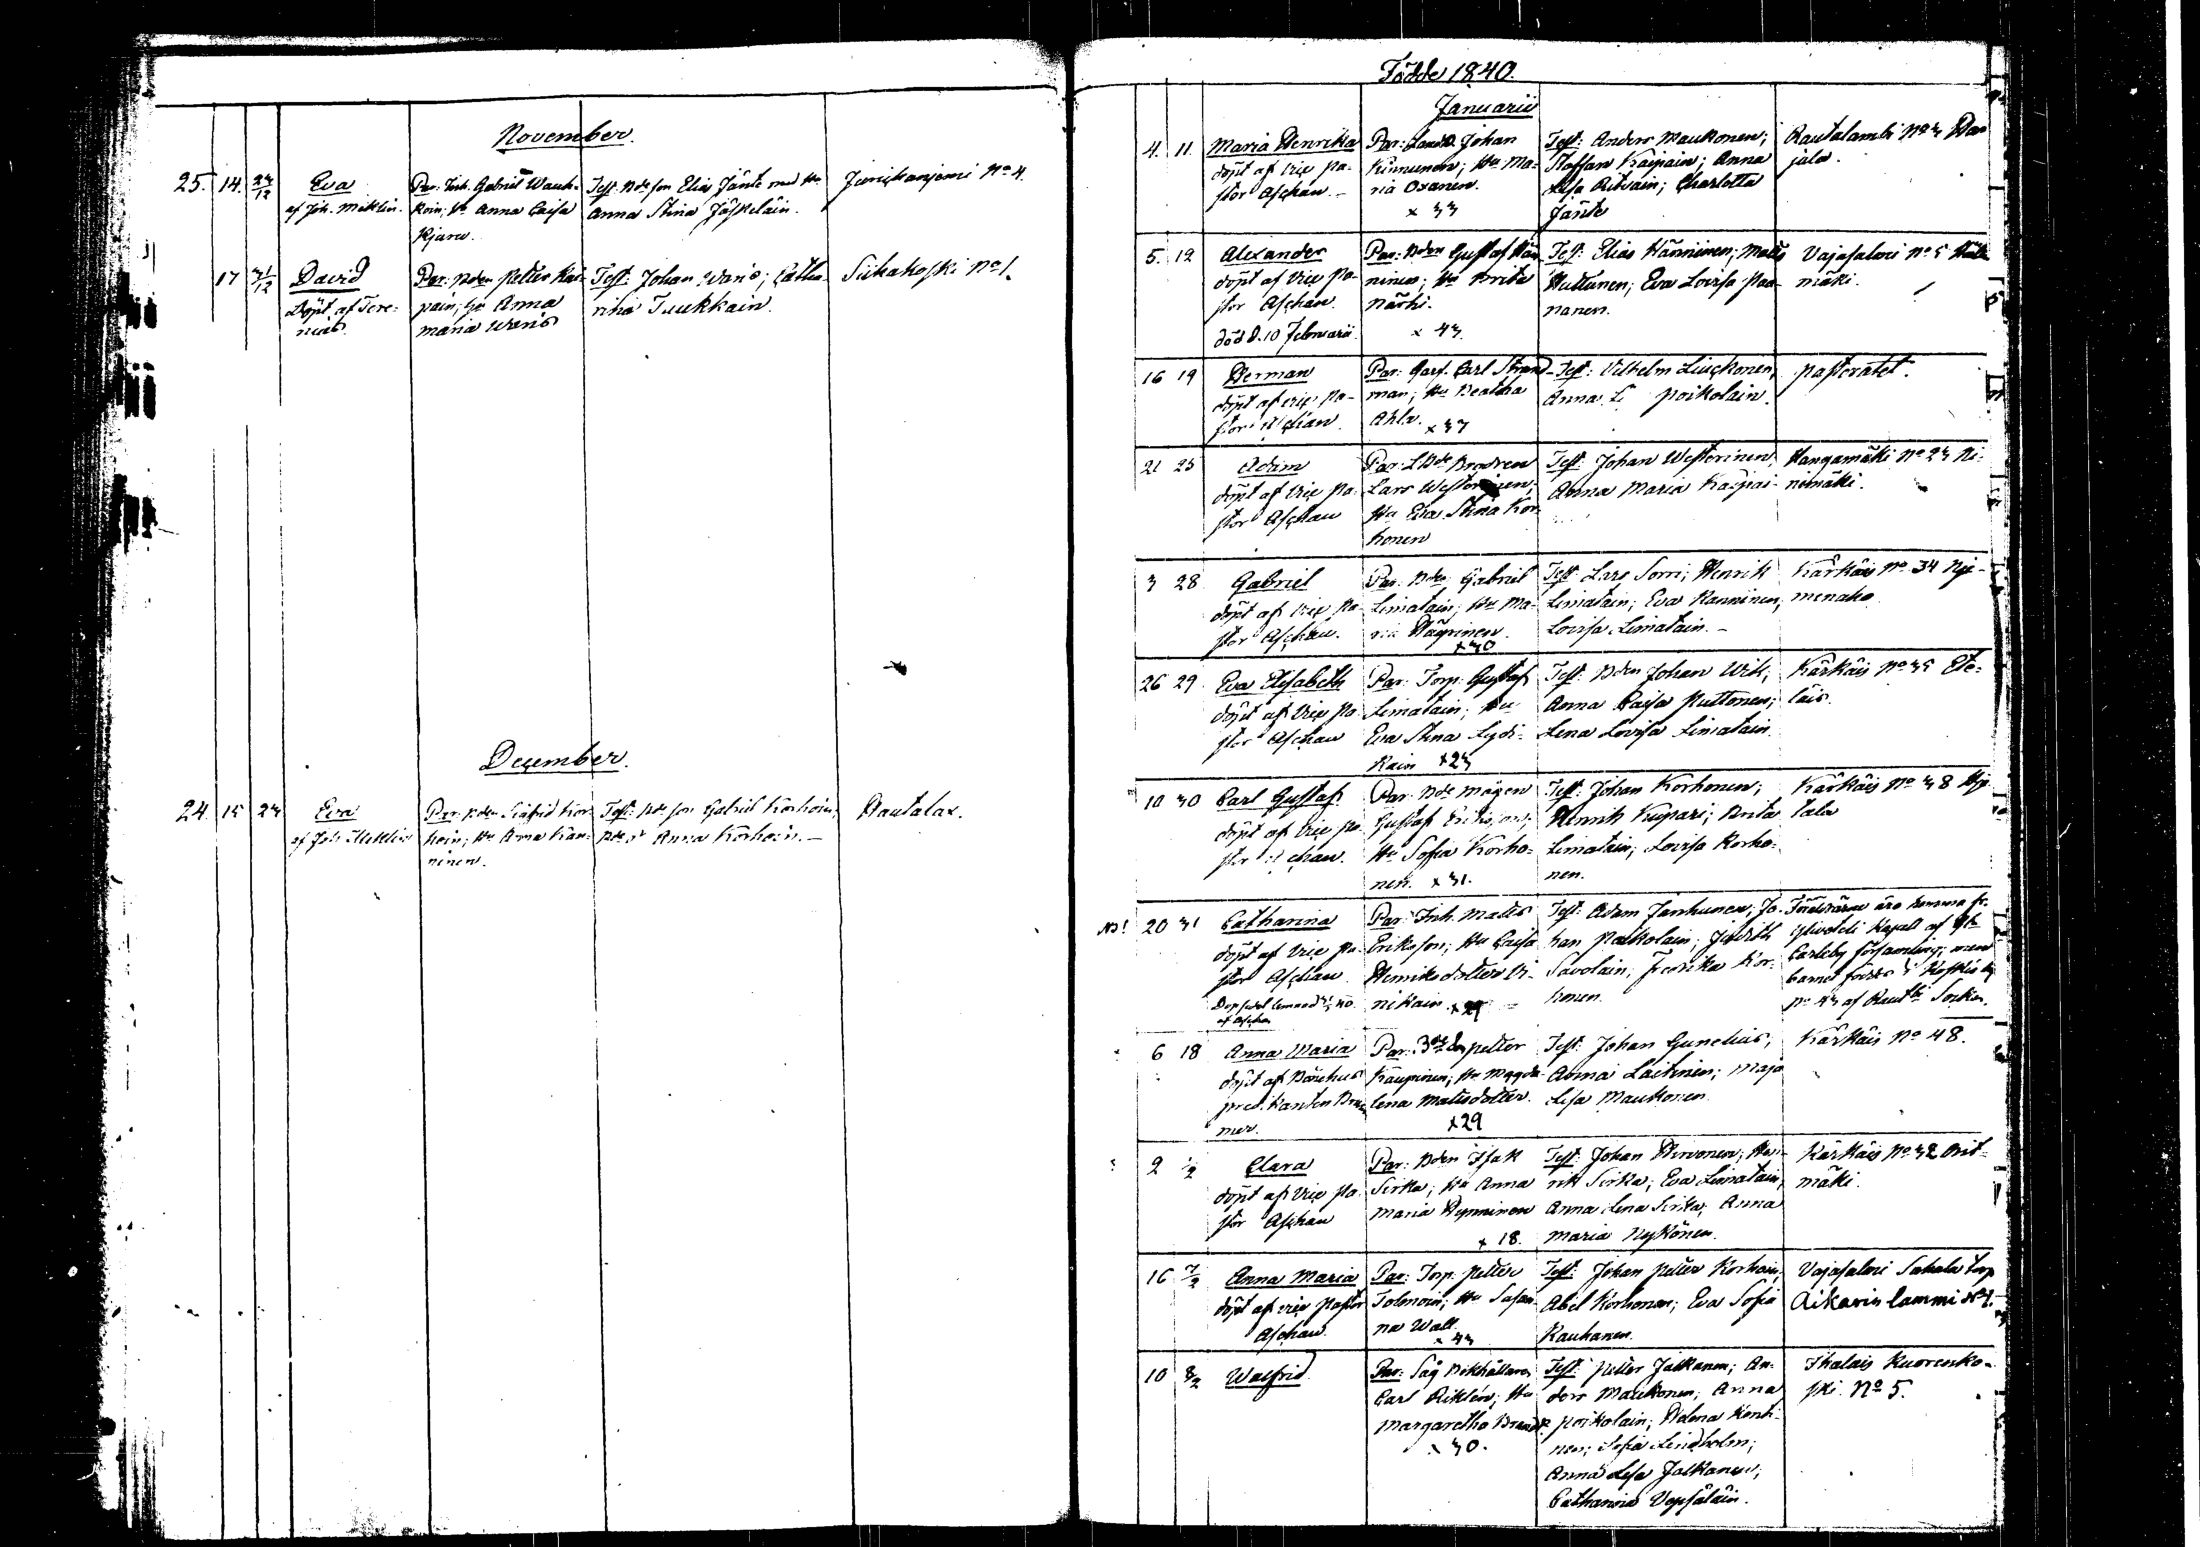 November.
25. 14. 24/12 Eva
af Joh. Meklin.
Par: Inh. Gabriel Wauh-
koin; Hu Anna Caisa
Kjaru.
Test. Bde son Elias Jänte med Hu
Anna Stina Jäskeläin.
No 4.
17 31/12 David
Döpt af Fere-
nius.
Par: Bden Petter Kai-
pain; Hu Anna
Maria Wans
Test: Johan Wans; Catha-
rina Tuukkain.
Siikakoski No 1.
December.
24. 15 27 Eva
af Joh Meklin
Par: Bden Sigfrid Kor-
hoin; Hu Anna Kan-
ninen.
Test: Bde son Gabriel Korhoin,
Anna Korhoin.
Rautalax.
Födde 1840.
Januarii
4. 11. Maria Henrika
döpt af Vice Pa-
stor Aschan.
Par: Landb. Johan
Kinnunen; Hu Ma-
ria Oxanen.
x 33
Test: Anders Maukonen;
Staffan Käipäin; Anna
Lisa Ritvain; Charlotta
Jänte
Rautalambi No 3 Har
jala.
5. 12 Alexander
döpt af Vice Pa-
stor Aschan.
död d. 10 Februarii.
Par: Bden Gustaf Hän
ninen; Hu Brita
Närhi.
x 43.
Test: Elias Hänninen; Mats
Huttunen; Eva Lovisa Paa-
nanen.
Vajasalmi No 5
mäki.
16 19 Herman
döpt af Vice Pa-
stor Aschan.
Par: Garf. Carl Strand-
man; Hu Beatha
Ahla.
x 37
Test: Vilhelm Liuckonen,
Anna Poikolain.
Pastoratet.
21 25 Adam
döpt af Vice Pa-
stor Aschan
Par: LBde Brodren
Lars Westerinen;
Hu Eva Stina Kor-
honen
Test: Johan Westerinen,
Anna Maria Kaipai-
Hangamäki No 23 Ni-
nimäki.
3 28 Gabriel
döpt af Vice Pa-
stor Aschan.
Par: Bden Gabriel
Limatain; Hu Ma-
ria Häyrinen.
x 30
Test: Lars Sorri; Henrik
Limatain; Eva Kanninen,
Lovisa Limatain.
Kärkäis No 34 Nje-
menaho
26 29 Eva Elisabeth
döpt af Vice Pa
stor Aschan
Par: Torp. Gustaf
Limatain; Hu
Eva Stina Lydi-
kain x 23
Test: Bden Johan Wilk;
Anna Caisa Puttonen;
Lena Lovisa Limatain.
Kärkäis No 35 Ete-
läis.
10 30 Carl Gustaf
döpt af Vice Pa-
stor Aschan.
Par: Bde Mågen
Gustaf Eriksson,
Hu Sofia Korho-
nen. x 31.
Test: Johan Korhonen;
Henrik Kupari; Brita
Limatain; Lovisa Korho-
nen.
Kärkäis No 38
tala
NB! 20 31 Catharina
döpt af Vice Pa-
stor Aschan
af Aschan
Par: Inh. Matts
Eriksson; Hu Caisa
Henriksdotter Vi-
nikain x 29
Test: Adam Janhunen; Jo-
han Poikolain; Judith
Savolain; Fredrika Kor-
honen.
Föräldrarne äro komma fr.
Ylivetili Kapell af Gl.
Carleby församling; men
barnet föddes i
No 43 af Rautbi Socken.
6 18 Anna Maria
döpt af Bönehus
predikanten
mer.
Par: Petter
Kaupinen; Hu Magda-
lena Matsdotter.
x 29
Test: Johan Gunelius;
Anna Laitinen; Maja
Lisa Maukonen.
Kärkäis No 48.
2 1/2 Clara
döpt af Vice Pa-
stor Aschan
Par: Bden Isak
Sirka; Hu Anna
Maria Hynninen
x 18.
Test: Johan Hirvonen; Hen-
rik Sirka; Eva Limatain;
Anna Lena Sirka; Anna
Maria Nykönen.
Kärkäis No 32
mäki.
16 7/2 Anna Maria
döpt af Vice Pastor
Aschan.
Par: Torp. Petter
Tolonoin; Hu Susan-
na Wall.
x 43
Test: Johan Petter Korhoin;
Abel Korhonen; Eva Sofia
Rauhanen.
Vajasalmi Sahala torp
Aikarin lammi No 1.
10 8/2 Walfrid
Par: Såg Bokhållaren
Carl Riklén; Hu
Margaretha Brandt.
x 30.
Test: Petter Jalkanen; An-
ders Maukonen; Anna
Poikolain; Helena Konti-
nen; Sofia Lindholm;
Anna Lisa Jalkanen;
Catharina Vepsäläin.
Ihalais Kuorenko-
ski No 5.